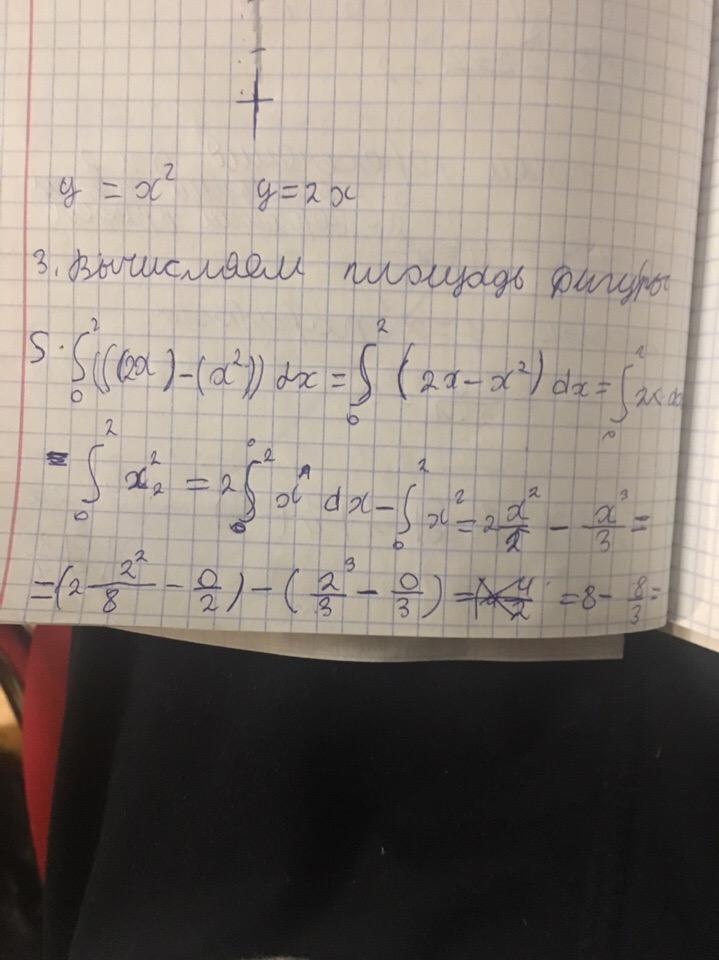 y = x² y = 2x
3. Вычисляем площадь фигуры
S · ∫₀² (((2x) - (x²)) dx = ∫₀² (2x - x²) dx = ∫₀² 2x
= ∫₀² x²₂ = 2 ∫₀² x dx - ∫₀² x² = 2 x²/2 - x³/3 =
= (2 2²/8 - 0/2) - (2³/3 - 0/3) = = 8 - 8/3 =